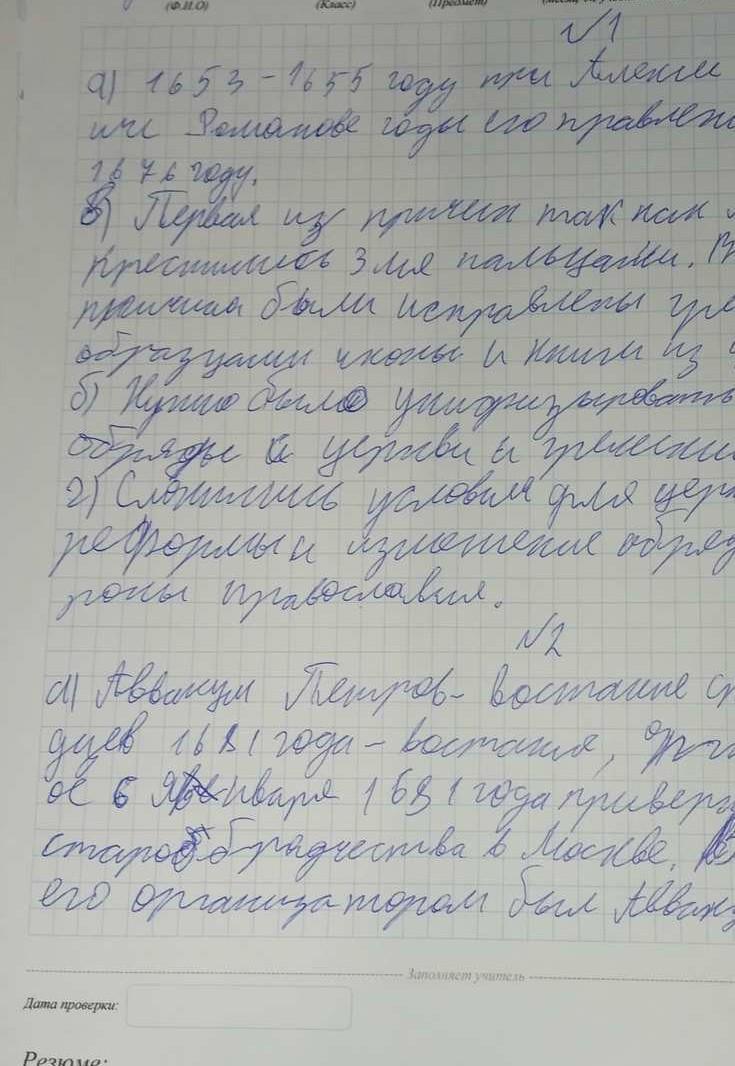 (Ф.И.О) (Класс) (Предмет)
№1
а) 1653-1655 году при Алексее
иче Романове годы его правлен
1676 году.
в) Первая из причен так как
крестились 3мя пальцами.
причина были исправлены гре
образцами иконы и книги из
б) Нужно было унифизыровать
обряды и церкви и гречески
г) Сложились условия для цер
реформы и изменение обряд
роны православия.
№2
а) Аввакум Петров- востание ст
дцев 1681 года - востания,
ое 6 января 1681 года приверж
старообрядчества в Москве.
его организатором был Авваку
Заполняет учитель
Дата проверки:
Резюме: